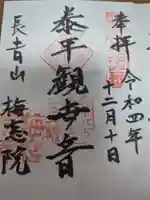 奉拝
令和四年
十二月十日
泰平観世音
長音山
梅忘院